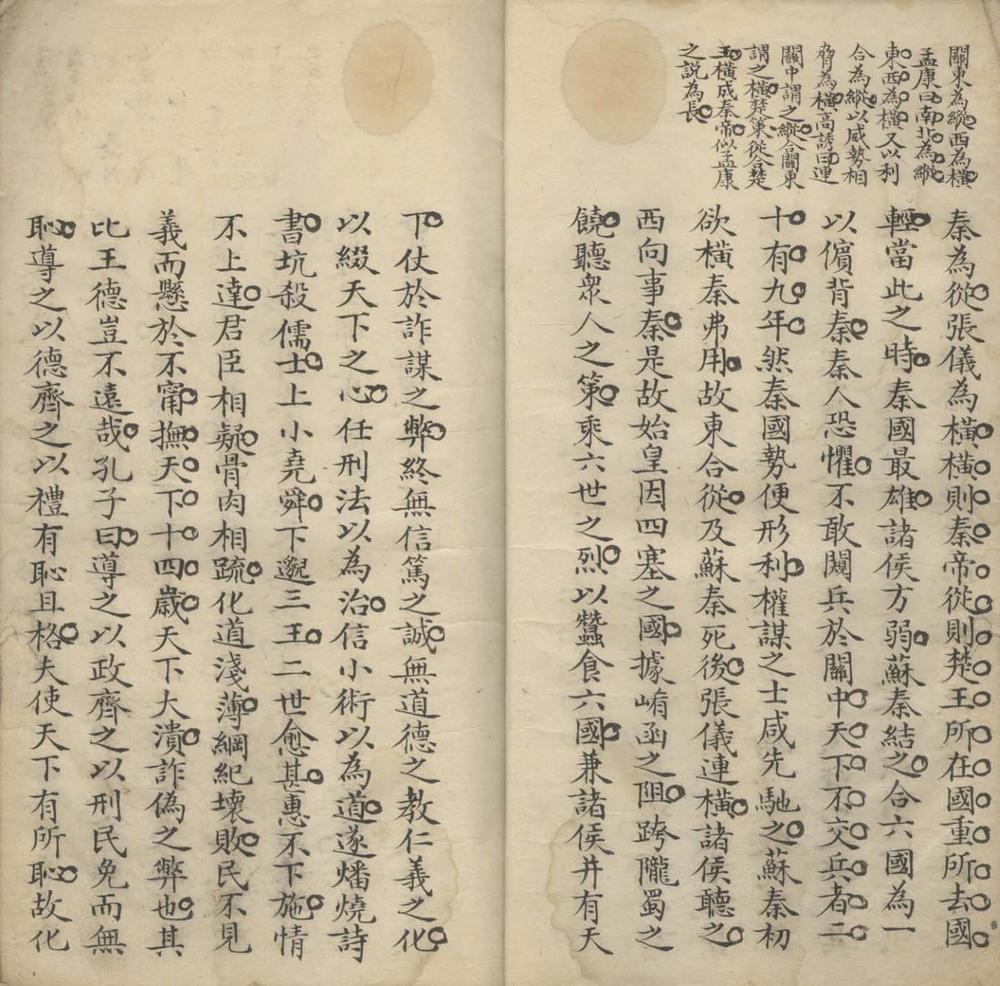 關東為縱西為橫
孟康曰南北為縱
東西為橫又以利
合為縱以威勢相
脅為橫高誘曰連
關中謂之縱合關東
謂之橫楚策從合楚
王橫成秦帝似孟康
之説為長
秦為從張儀為橫橫則秦帝從則楚王所在國重所去國
輕當此之時秦國最雄諸侯方弱蘇秦結之合六國為一
以儐背秦秦人恐懼不敢闚兵於關中天下不交兵者二
十有九年然秦國勢便形利權謀之士咸先馳之蘇秦初
欲橫秦弗用故東合從及蘇秦死後張儀連橫諸侯聽之
西向事秦是故始皇因四塞之國據崤函之阻跨隴蜀之
饒聽衆人之策乘六世之烈以蠶食六國兼諸侯并有天
下仗於詐謀之弊終無信篤之誠無道德之教仁義之化
以綴天下之心任刑法以為治信小術以為道遂燔燒詩
書坑殺儒士上小堯舜下邈三王二世愈甚惠不下施情
不上達君臣相疑骨肉相疏化道淺薄綱紀壞敗民不見
義而懸於不甯撫天下十四歲天下大潰詐偽之弊也其
比王德豈不遠哉孔子曰導之以政齊之以刑民免而無
恥導之以德齊之以禮有恥且格夫使天下有所恥故化